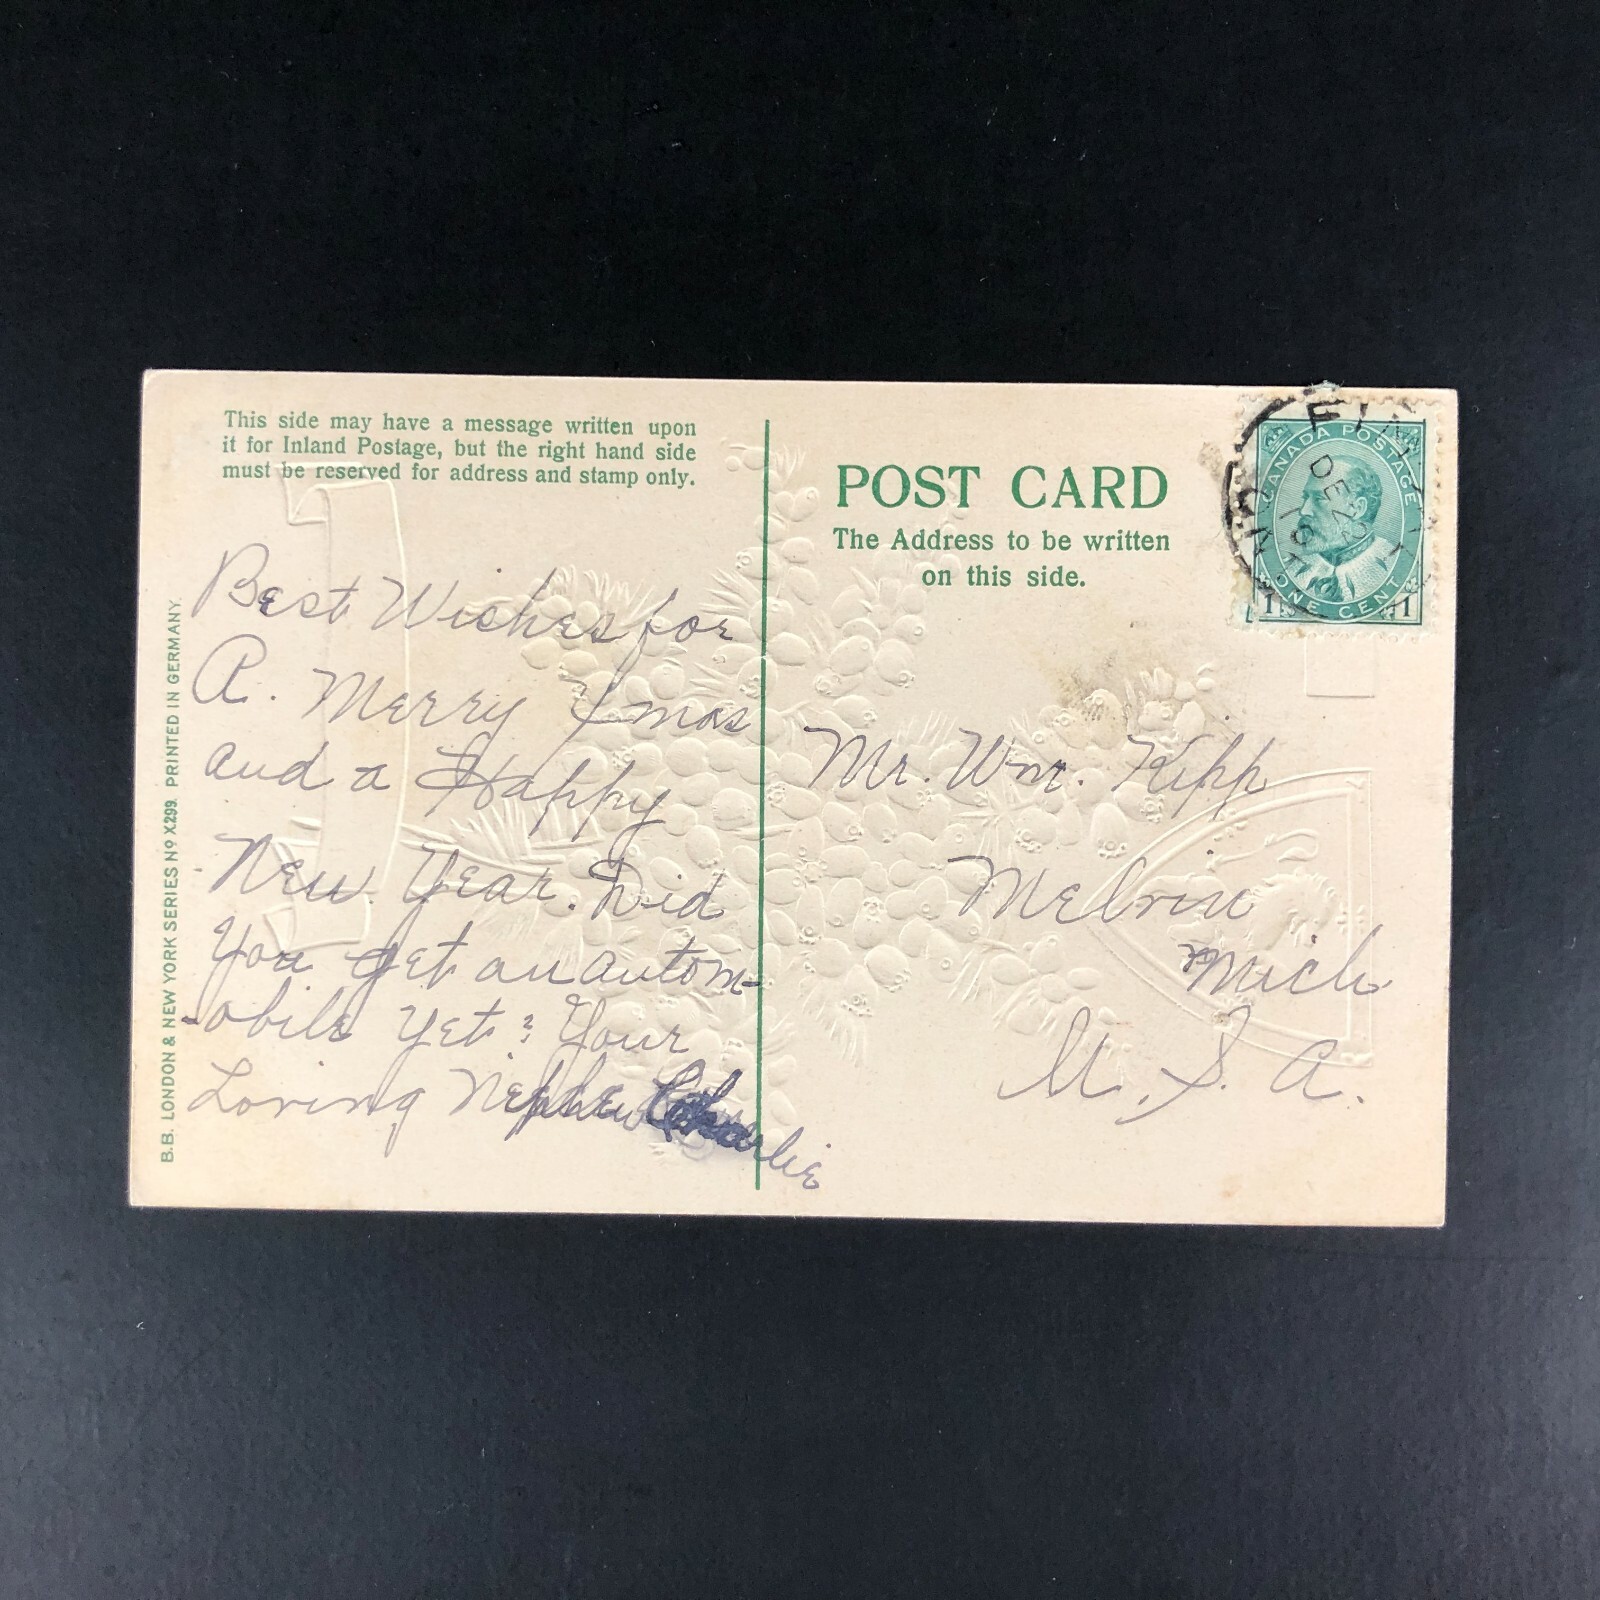 This side may have a message written upon
it for Inland Postage, but the right hand side
must be reserved for address and stamp only.
Best Wishes for
A. Merry Xmas
and a Happy
New Year. Did
You get an autom-
-obile yet? Your
Loving Nephew Charlie
B.B. LONDON & NEW YORK SERIES Nº X299. PRINTED IN GERMANY.
POST CARD
The Address to be written
on this side.
Mr. Wm. Kipp
Melvin
Mich.
U. S. A.
CANADA POSTAGE
ONE CENT
1 1
DE 22
ONT